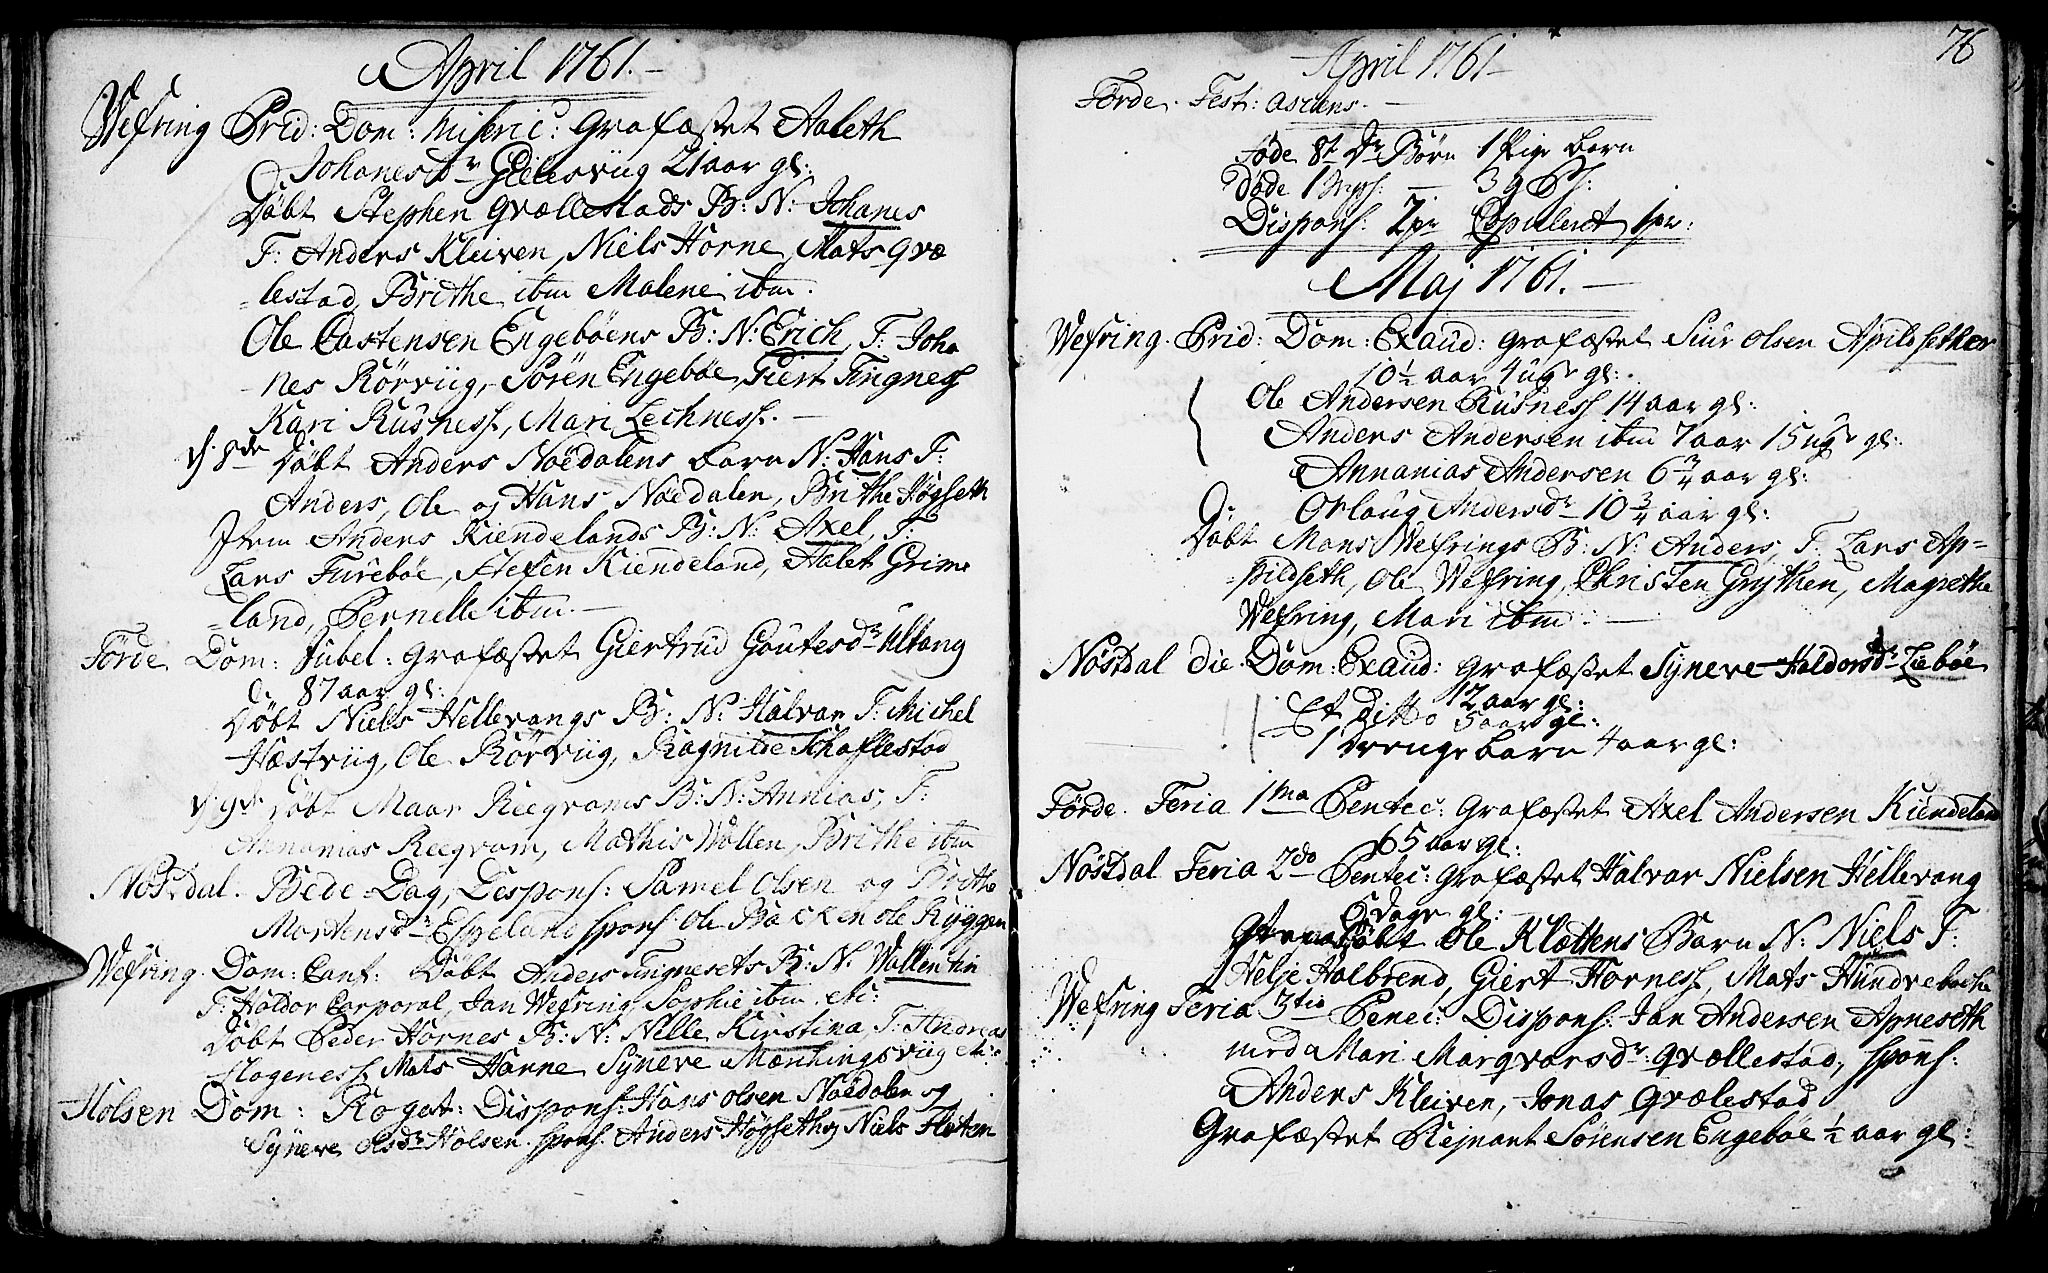 April 1761.
Wefring Prid: Dom: Miseric: Grafæstet Aaleth
Johanesdr Gielesviig 21 aar gl:
Døbt Stephen Qvællestads B: N: Johanes
F: Anders Kleiven, Niels Horne, Mats Qvæ
lestad, Brithe ibm Malene ibm.
Ole Castensen Engebøens B: N: Erich, F: Joha
nes Rörviig, Sören Engebøe, Giert Tingness
Kari Rusness, Mari Lechness.
d: 8de Døbt Anders Noedalens barn N: Hans F:
Anders, Ole og Hans Noedalen, Brithe Högseth
Item Anders Kiendelands B: N: Axel, F:
Lars Furebøe, Stefen Kiendeland, Aalet Grime
land, Pernelle ibm.
Förde Dom: Jubel: Grafæstet Giertrud Goutesdr Ultang
87 aar gl:
Døbt Niels Hellevangs B: N: Halvar F: Michel
Hæstviig, Ole Rörviig, Ragnilde Schaflestad
d: 9de Døbt Maar Reeqvams B: N: Annias, F:
Annanias Reeqvam, Mathis Wollen, Brithe ibm
Nösdal. Bede Dag, Dispons: Samel Olsen og Brithe
Mortensdr Espeland spons: Ole Backen Ole Ryggen
Wefring. Dom: Cant: Døbt Anders Tingnesets B: N. Wallentin
F: Haldor Corporal, Jan Wefring, Sophie ibm etc:
Døbt Peder Hornes B: N: Nille Kirstina, F: Andreas
Hageness, Mats Hanne Syneve Mænningsviig etc:
Holsen Dom: Rogat: Dispons: Hans Olsen Noedalen og
Syneve Olsdr Holsen. spons. Anders Högseth og Niels Floten
76
April 1761
Förde. Fest: Ascens.
Föde 8t Dr Börn 1 Pige barn
Döde 1
Dispons: 7 par Copuleret 1 par:
Maj 1761.
Wefring. Prid: Dom: Exaud: Grafæstet Siur Olsen Apildsether
10 1/2 aar 4 ugr gl:
Ole Andersen Rusness 14 aar gl:
Anders Andersen ibm 7 aar 15 ugr gl:
Annanias Andersen 6 3/4 aar gl:
Orlaug Andersdr 10 3/4 aar gl:
Døbt Mons Wefrings B: N: Anders, F: Lars Ap=
=pildseth, Ole Wefring, Christen Grythen, Magrethe
Wefring, Mari ibm.
Nösdal die Dom: Exaud: Grafæstet Syneve Haldorsdr Liebøe
12 aar gl:
Et Ditto 5 aar gl:
1 Drenge barn 4 aar gl:
Förde. Feria 1ma Pentec: Grafæstet Axel Andersen Kiendeland
65 aar gl:
Nösdal Feria 2do Pentec: Grafæstet Halvar Nielsen Hellevang
6 dage gl:
Døbt Ole Klættens Barn N: Niels F:
Helje Halbrend, Giert Horness, Mats Hundvebache
Wefring Feria 3tio Penec: Dispons: Jan Andersen Apneseth
med Mari Marqvarsdr Qvællestad, spons:
Anders Kleiven, Jonas Qvælestad
Grafæstet Rejnant Sörensen Engebøe 1/2 aar gl: